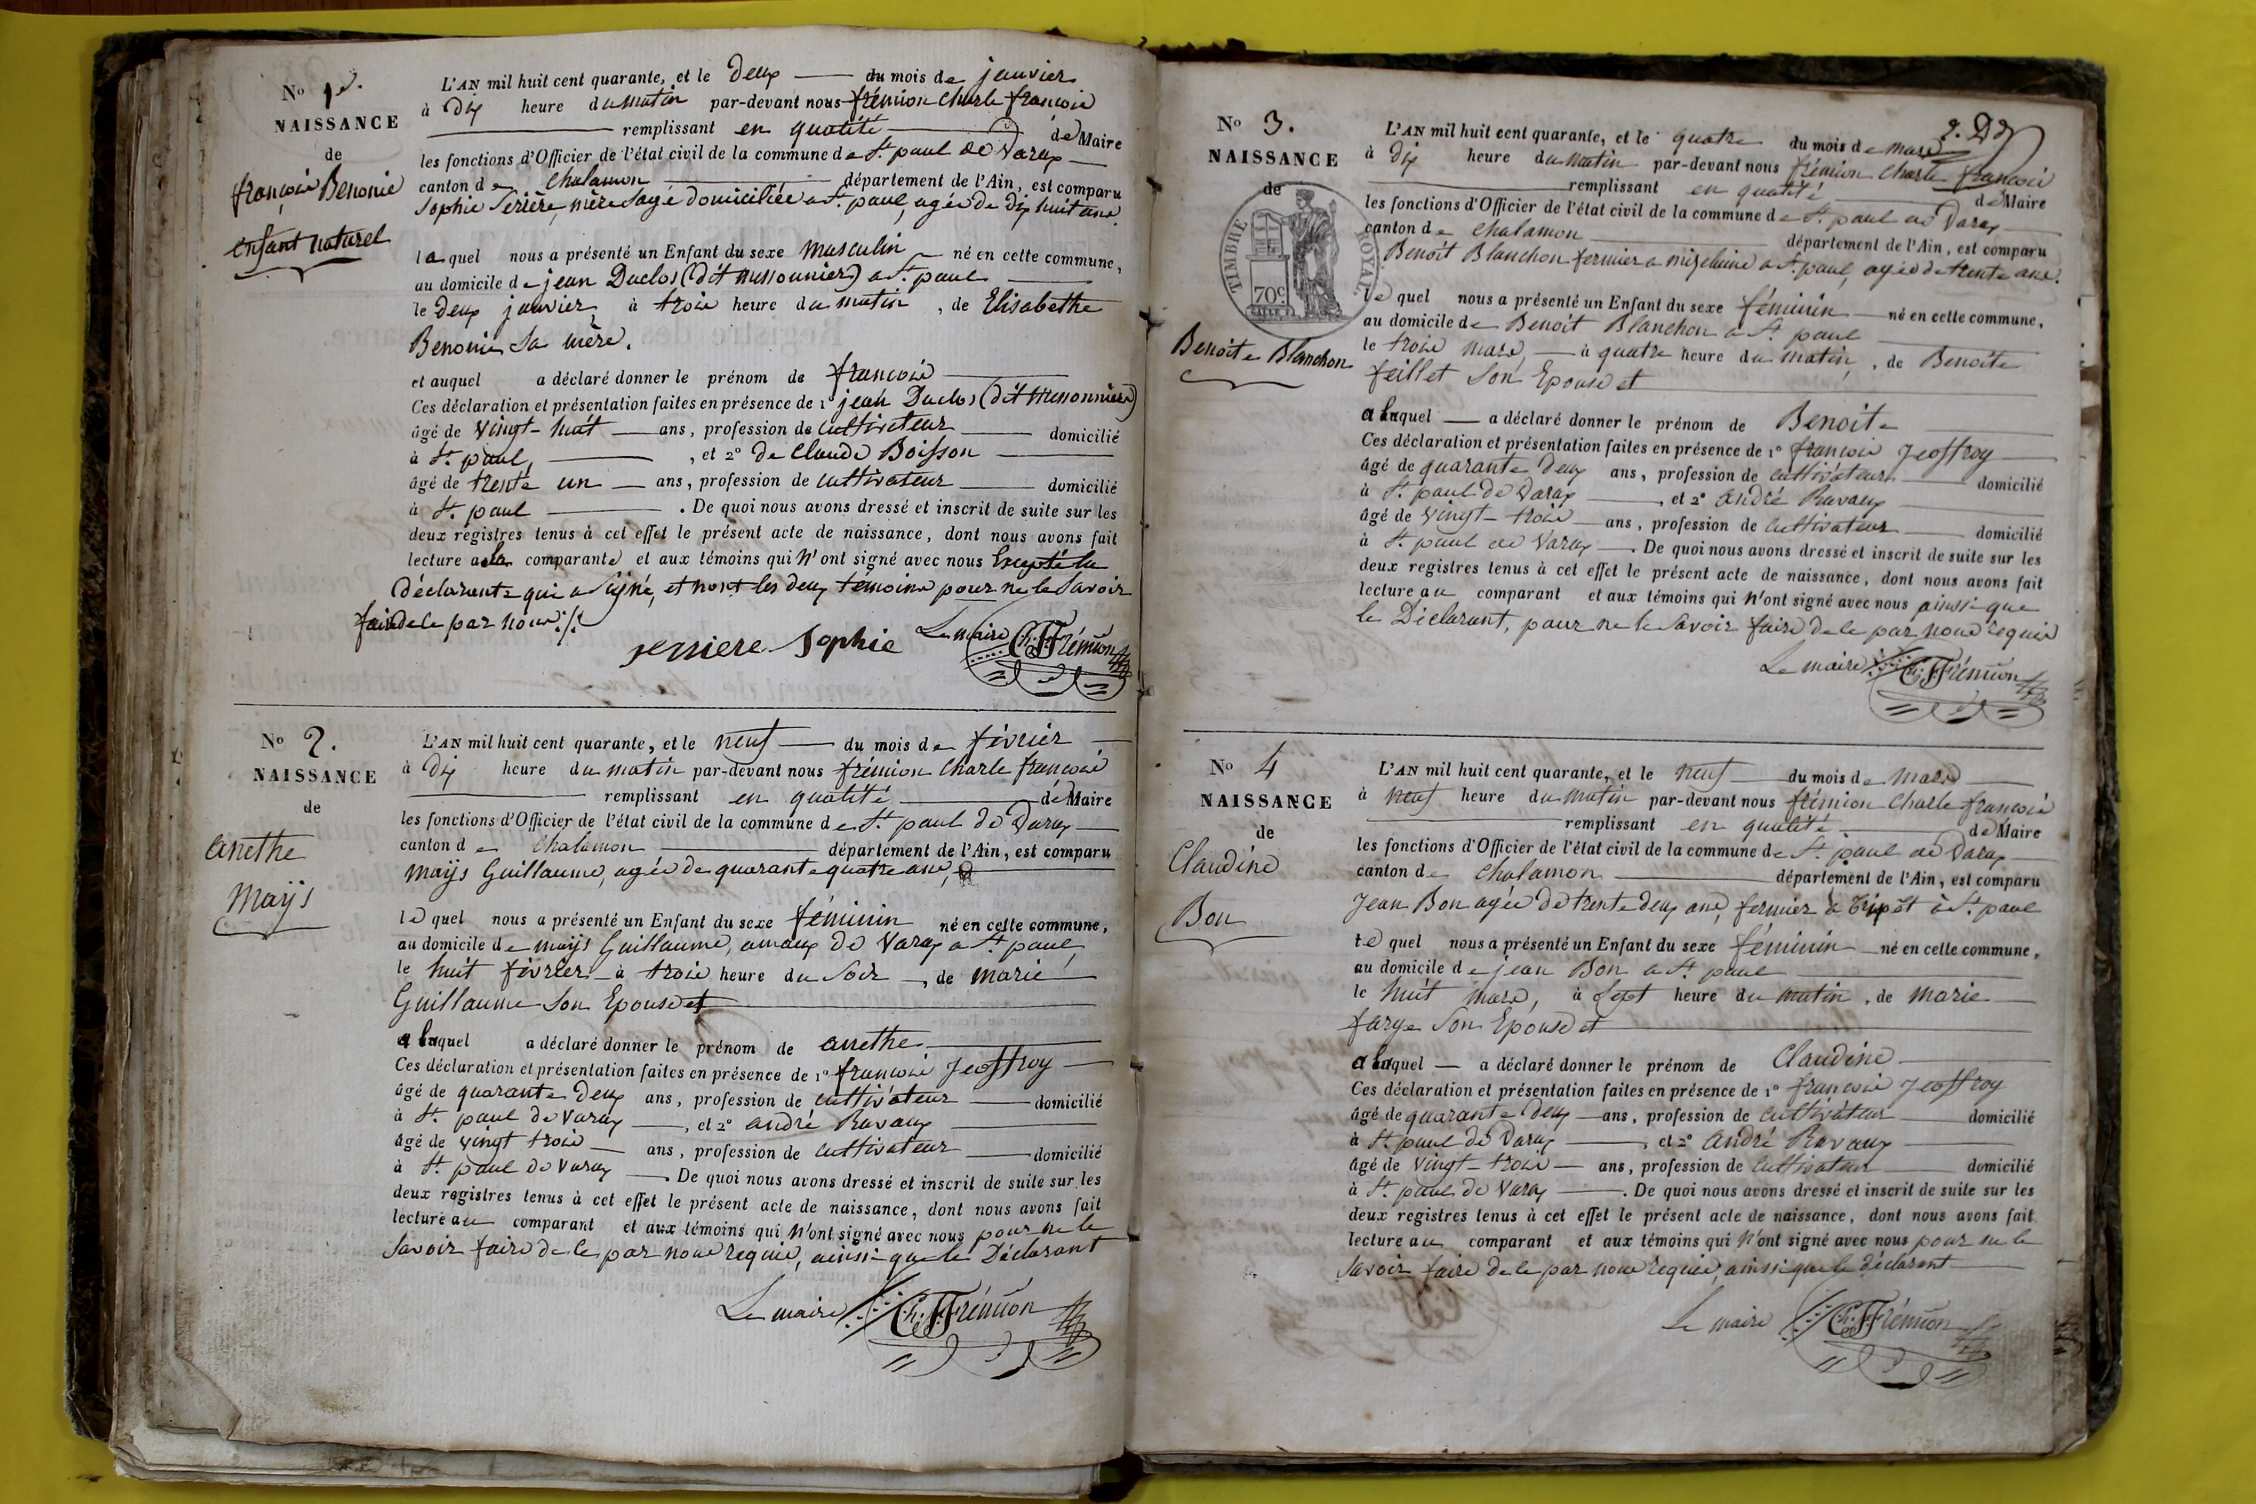 No 1er.
NAISSANCE
de
françois Benonie
enfant naturel
L'AN mil huit cent quarante, et le deux du mois de janvier
à dix heure du matin par-devant nous frémion Charle françois
remplissant en qualité de Maire
les fonctions d'Officier de l'état civil de la commune de St. paul de Varax
canton de Chalamon département de l'Ain, est comparu
Sophie Serière, mère Sage domiciliée a St. paul, agée de dix huit ans
laquel nous a présenté un Enfant du sexe masculin né en cette commune,
au domicile de jean Duclos (dit Missonnier) a St. paul
le deux janvier, à trois heure du matin, de Elisabethe
Benonie Sa mère.
et auquel a déclaré donner le prénom de françois
Ces déclaration et présentation faites en présence de 1° jean Duclos (dit Missonnier)
âgé de vingt-huit ans, profession de cultivateur domicilié
à St. paul, , et 2° de Claude Boisson
âgé de trente un ans, profession de cultivateur domicilié
à St. paul . De quoi nous avons dressé et inscrit de suite sur les
deux registres tenus à cet effet le présent acte de naissance, dont nous avons fait
lecture a la comparante et aux témoins qui n'ont signé avec nous Excepté la
déclarante qui a Signé, et nont les deux témoins pour ne le Savoir
faire de le par nous
serriere Sophie Le maire Ch. F. Frémion
No 2.
NAISSANCE
de
anethe
Mayjs
L'AN mil huit cent quarante, et le neuf du mois de février
à dix heure du matin par-devant nous frémion Charle françois
remplissant en qualité de Maire
les fonctions d'Officier de l'état civil de la commune de St. paul de Varax
canton de Chalamon département de l'Ain, est comparu
Mayjs Guillaume, agée de quarante quatre ans,
lequel nous a présenté un Enfant du sexe féminin né en cette commune,
au domicile de mayjs Guillaume, de Varax a St. paul,
le huit février à trois heure du Soir, de marie
Guillaume Son Epouse et
a laquel a déclaré donner le prénom de anethe
Ces déclaration et présentation faites en présence de 1° françois Jeoffroy
âgé de quarante deux ans, profession de cultivateur domicilié
à St. paul de Varax , et 2° andré Ravaux
âgé de vingt trois ans, profession de cultivateur domicilié
à St. paul de Varax . De quoi nous avons dressé et inscrit de suite sur les
deux registres tenus à cet effet le présent acte de naissance, dont nous avons fait
lecture au comparant et aux témoins qui n'ont signé avec nous pour ne le
Savoir faire de le par nous requis, ainssi que le Déclarant
Le maire Ch. F. Frémion
No 3.
NAISSANCE
de
TIMBRE ROYAL
70c
Benoite Blanchon
L'AN mil huit cent quarante, et le quatre du mois de mars
à dix heure du matin par-devant nous frémion Charle françois
remplissant en qualité de Maire
les fonctions d'Officier de l'état civil de la commune de St. paul de Varax
canton de Chalamon département de l'Ain, est comparu
Benoit Blanchon fermier a a St. paul, agée de trente ans.
lequel nous a présenté un Enfant du sexe féminin né en cette commune,
au domicile de Benoit Blanchon a St. paul
le trois mars, à quatre heure du matin, de Benoite
feillet Son Epouse et
a laquel a déclaré donner le prénom de Benoite
Ces déclaration et présentation faites en présence de 1° françois Jeoffroy
âgé de quarante deux ans, profession de cultivateur domicilié
à St. paul de Varax , et 2° andré Ravaux
âgé de vingt-trois ans, profession de cultivateur domicilié
à St. paul de Varax . De quoi nous avons dressé et inscrit de suite sur les
deux registres tenus à cet effet le présent acte de naissance, dont nous avons fait
lecture au comparant et aux témoins qui n'ont signé avec nous ainssi que
le Déclarant, pour ne le Savoir faire de le par nous requis
Le maire Ch. F. Frémion
No 4
NAISSANCE
de
Claudine
Bon
L'AN mil huit cent quarante, et le neuf du mois de mars
à neuf heure du matin par-devant nous frémion Charle françois
remplissant en qualité de Maire
les fonctions d'Officier de l'état civil de la commune de St. paul de Varax
canton de Chalamon département de l'Ain, est comparu
Jean Bon agée de trente deux ans, fermier a à St. paul
lequel nous a présenté un Enfant du sexe féminin né en cette commune,
au domicile de jean Bon a St. paul
le huit mars, à Sept heure du matin, de marie
farge Son Epouse et
a laquel a déclaré donner le prénom de Claudine
Ces déclaration et présentation faites en présence de 1° françois Jeoffroy
âgé de quarante deux ans, profession de cultivateur domicilié
à St. paul de Varax , et 2° andré Ravaux
âgé de vingt-trois ans, profession de cultivateur domicilié
à St. paul de Varax . De quoi nous avons dressé et inscrit de suite sur les
deux registres tenus à cet effet le présent acte de naissance, dont nous avons fait
lecture au comparant et aux témoins qui n'ont signé avec nous pour ne le
Savoir faire de le par nous requis, ainssi que le déclarant
Le maire Ch. F. Frémion